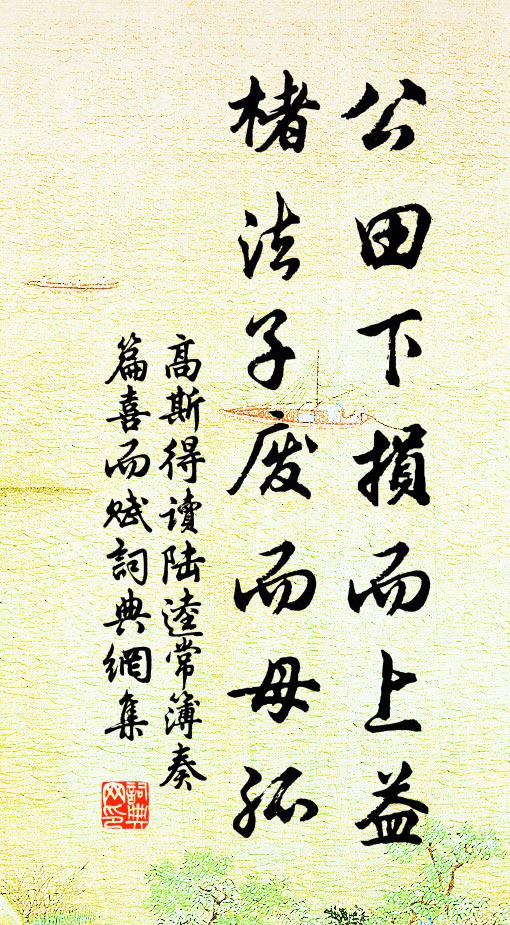 公田下損而上益
楮法子废而母孤
高斯得讀陆逵常簿奏
篇喜而赋詞典網集
詞典网印